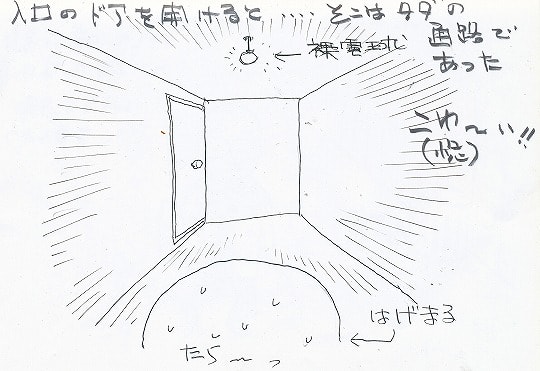 入口のドアを開けると‥‥そこはタダの
通路で
あった
←裸電球
こわ〜い!!
はげまる
たら〜っ